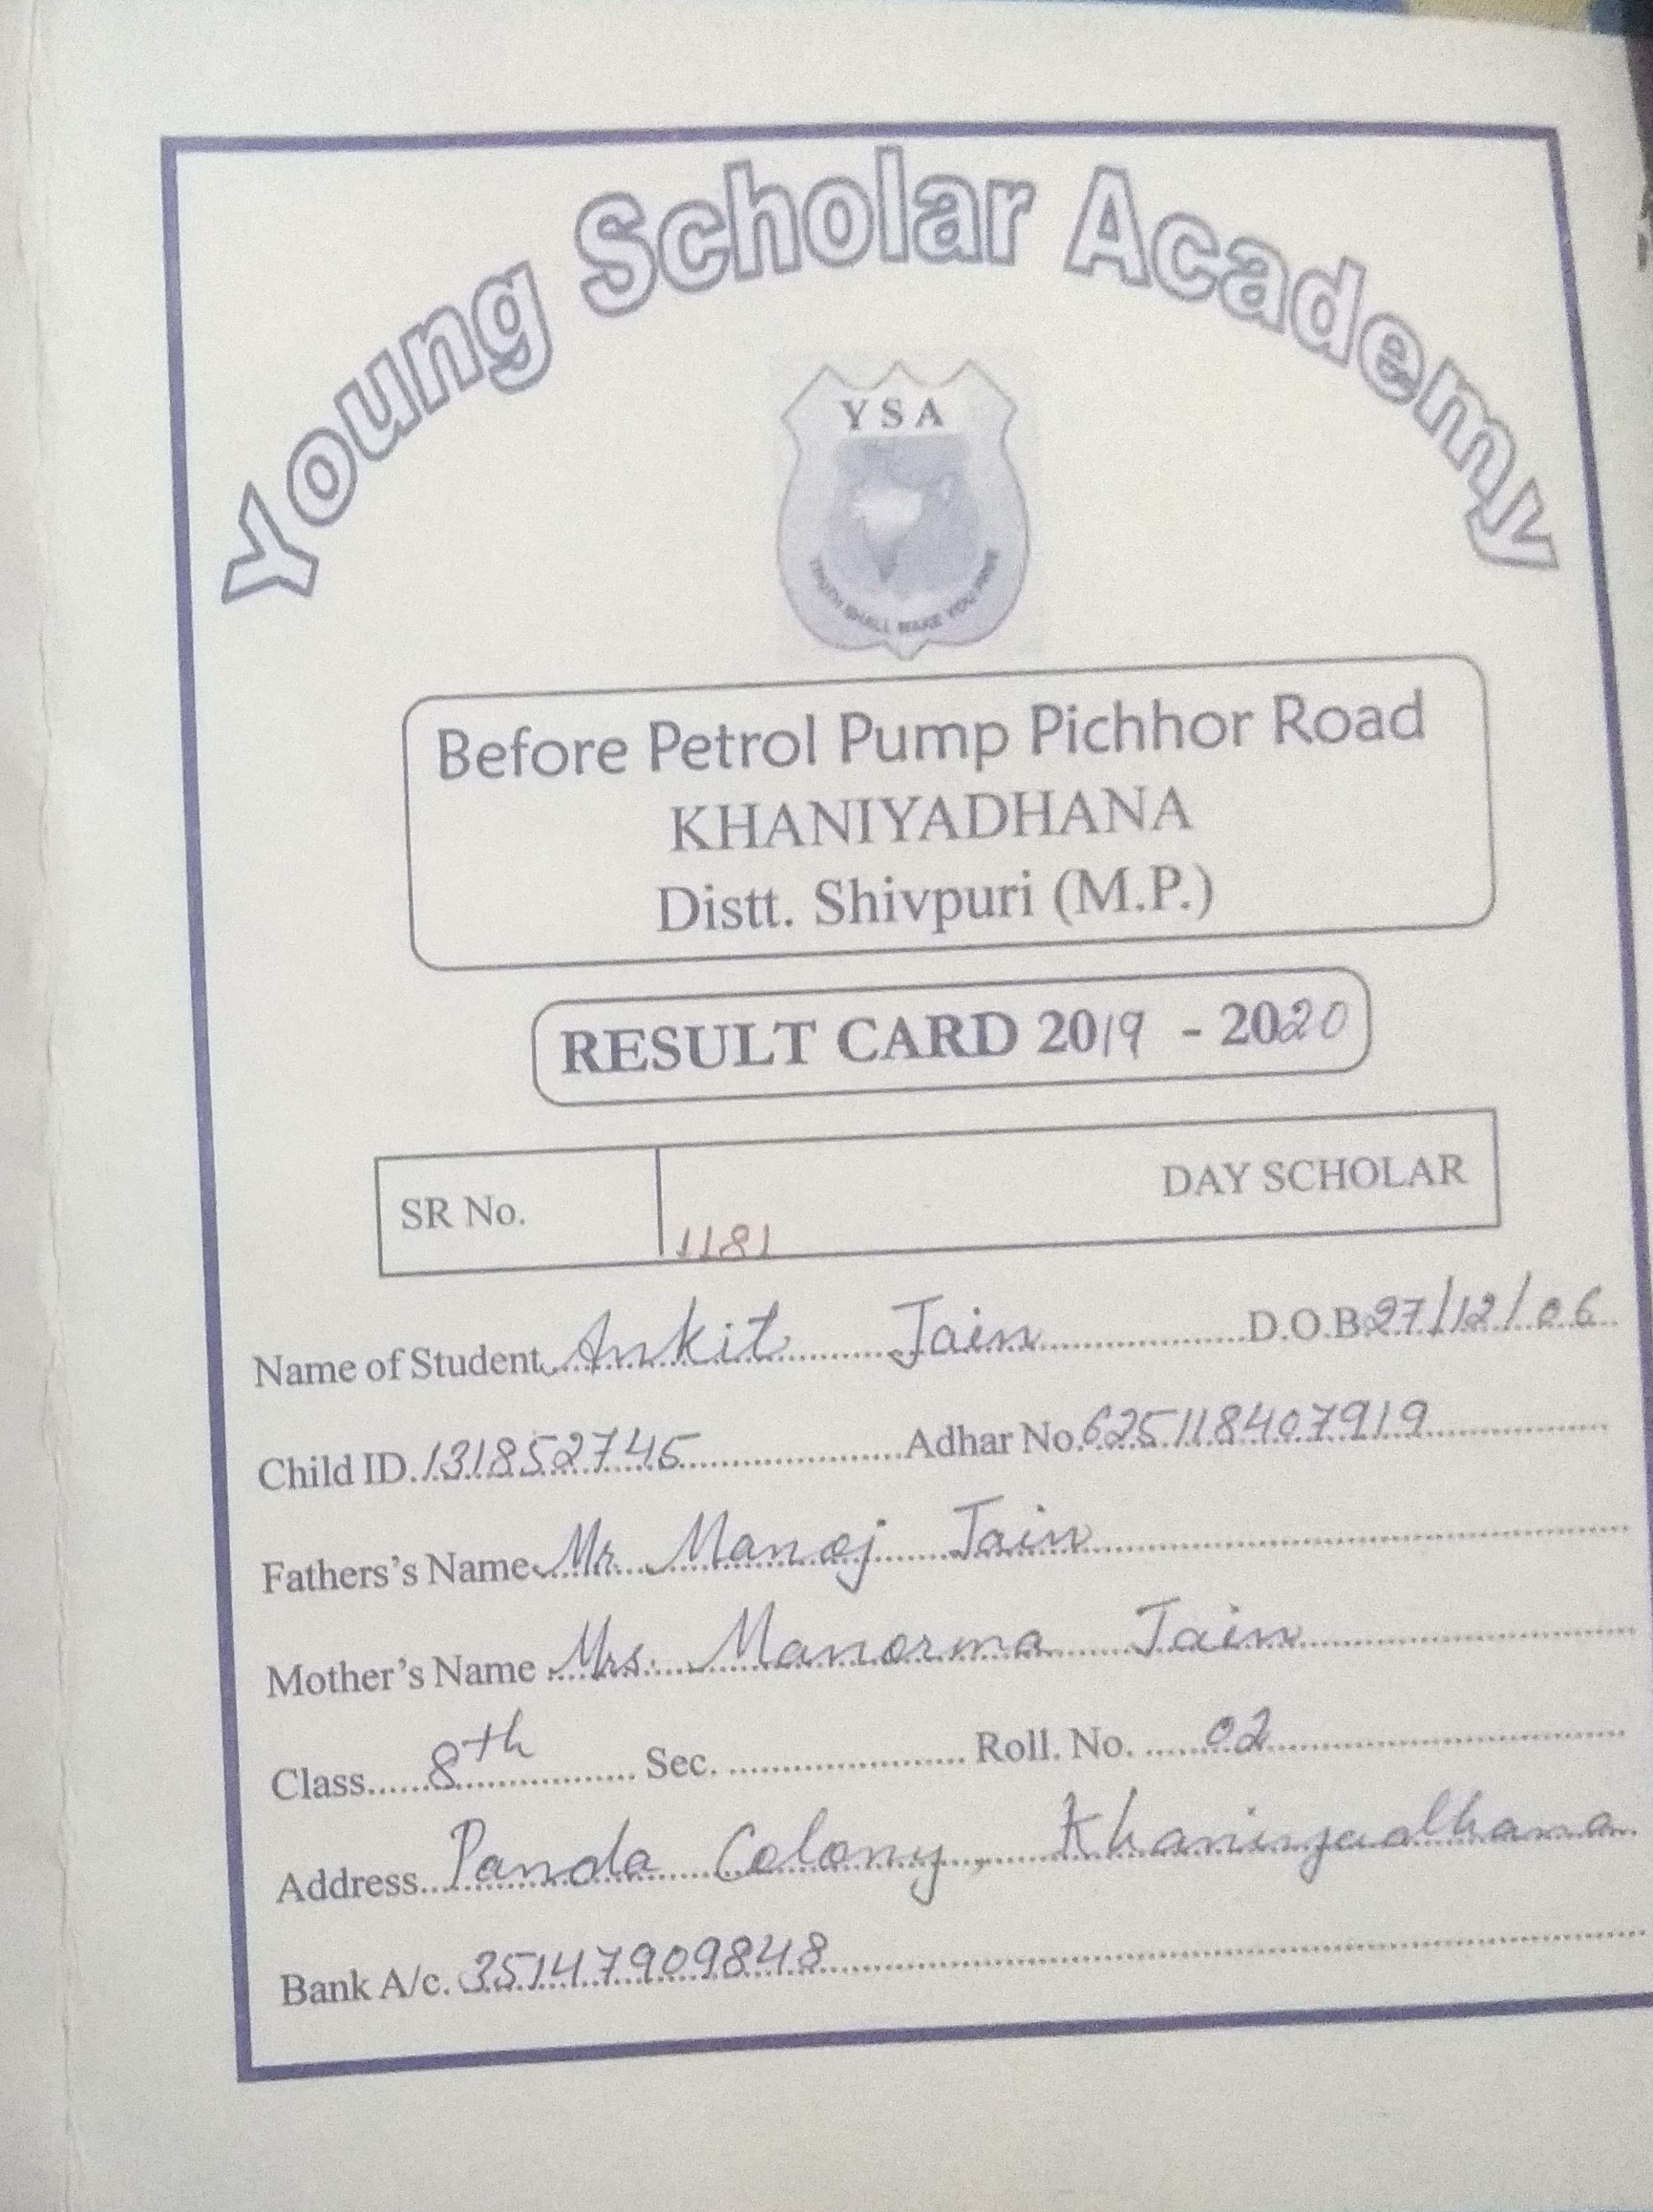 Young Scholar Academy
YSA
TRUTH SHALL MAKE YOU FREE
Before Petrol Pump Pichhor Road
KHANIYADHANA
Distt. Shivpuri (M.P.)
RESULT CARD 2019 - 2020
SR No. 1181 DAY SCHOLAR
Name of Student Ankit Jain D.O.B. 27/12/06
Child ID. 131852745 Adhar No. 625118407919
Fathers's Name Mr Manoj Jain
Mother's Name Mrs. Manorma Jain
Class 8th Sec. Roll. No. 02
Address Panda Colony, Khaniyadhana
Bank A/c. 351479098 48